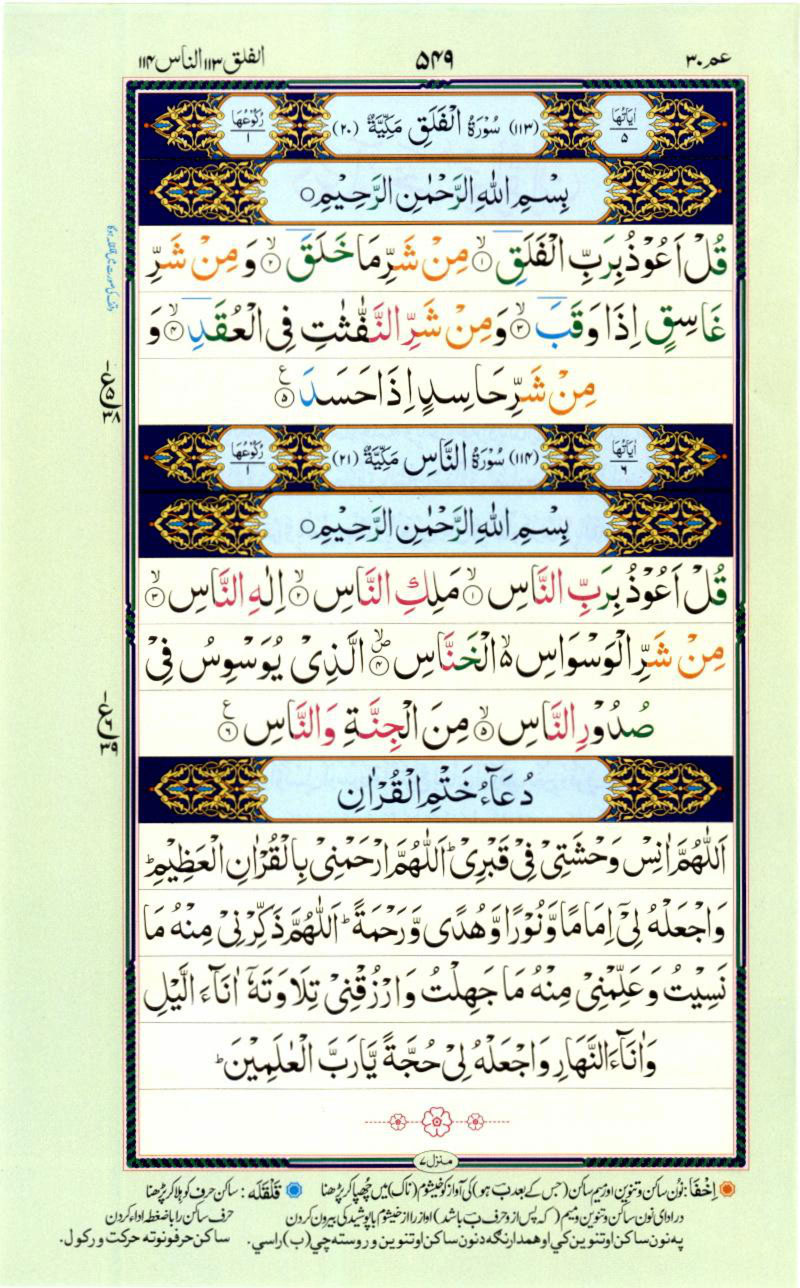 عم ۳۰
۵۴۹
الفلق ۱۱۳ الناس ۱۱۴
اٰیَاتُهَا ۵
(۱۱۳) سُوْرَةُ الْفَلَقِ مَكِّیَّةٌ (۲۰)
رُكُوْعُهَا ۱
بِسْمِ اللهِ الرَّحْمٰنِ الرَّحِیْمِ
قُلْ اَعُوْذُ بِرَبِّ الْفَلَقِ ۙ‏۱ مِنْ شَرِّ مَا خَلَقَ ۙ‏۲ وَ مِنْ شَرِّ
غَاسِقٍ اِذَا وَقَبَ ۙ‏۳ وَ مِنْ شَرِّ النَّفّٰثٰتِ فِی الْعُقَدِ ۙ‏۴ وَ
مِنْ شَرِّ حَاسِدٍ اِذَا حَسَدَ ۵ ع
اٰیَاتُهَا ۶
(۱۱۴) سُوْرَةُ النَّاسِ مَكِّیَّةٌ (۲۱)
رُكُوْعُهَا ۱
بِسْمِ اللهِ الرَّحْمٰنِ الرَّحِیْمِ
قُلْ اَعُوْذُ بِرَبِّ النَّاسِ ۙ‏۱ مَلِكِ النَّاسِ ۙ‏۲ اِلٰهِ النَّاسِ ۙ‏۳
مِنْ شَرِّ الْوَسْوَاسِ ۙ۬ الْخَنَّاسِ ۪ۙ‏۴ الَّذِیْ یُوَسْوِسُ فِیْ
صُدُوْرِ النَّاسِ ۙ‏۵ مِنَ الْجِنَّةِ وَ النَّاسِ ۶ ع
دُعَآءُ خَتْمِ الْقُرْاٰنِ
اَللّٰهُمَّ اٰنِسْ وَحْشَتِیْ فِیْ قَبْرِیْ ؕ اَللّٰهُمَّ ارْحَمْنِیْ بِالْقُرْاٰنِ الْعَظِیْمِ ؕ
وَاجْعَلْهُ لِیْٓ اِمَامًا وَّ نُوْرًا وَّ هُدًی وَّ رَحْمَةً ؕ اَللّٰهُمَّ ذَكِّرْنِیْ مِنْهُ مَا
نَسِیْتُ وَ عَلِّمْنِیْ مِنْهُ مَا جَهِلْتُ وَ ارْزُقْنِیْ تِلَاوَتَهٗٓ اٰنَآءَ الَّیْلِ
وَ اٰنَآءَ النَّهَارِ وَ اجْعَلْهُ لِیْ حُجَّةً یَّا رَبَّ الْعٰلَمِیْنَ ؕ
منزل ۷
اِخْفَا: نون ساکن و تنوین اور میم ساکن (جس کے بعد ب ہو) کی آواز کو خیشوم (ناک) میں چھپا کر پڑھنا
قَلْقَلَه: ساکن حرف کو ہلا کر پڑھنا
در ادای نون ساکن و تنوین و میم (که پس از و حرف ب باشد) آواز را از خیشوم با پوشیدگی بیرون کردن
حرف ساکن را با ضغطه ادا کردن
په نون ساکن او تنوین کي او همدارنګه د نون ساکن او تنوین وروسته چي (ب) راسي.
ساکن حرفونو ته حرکت ورکول.